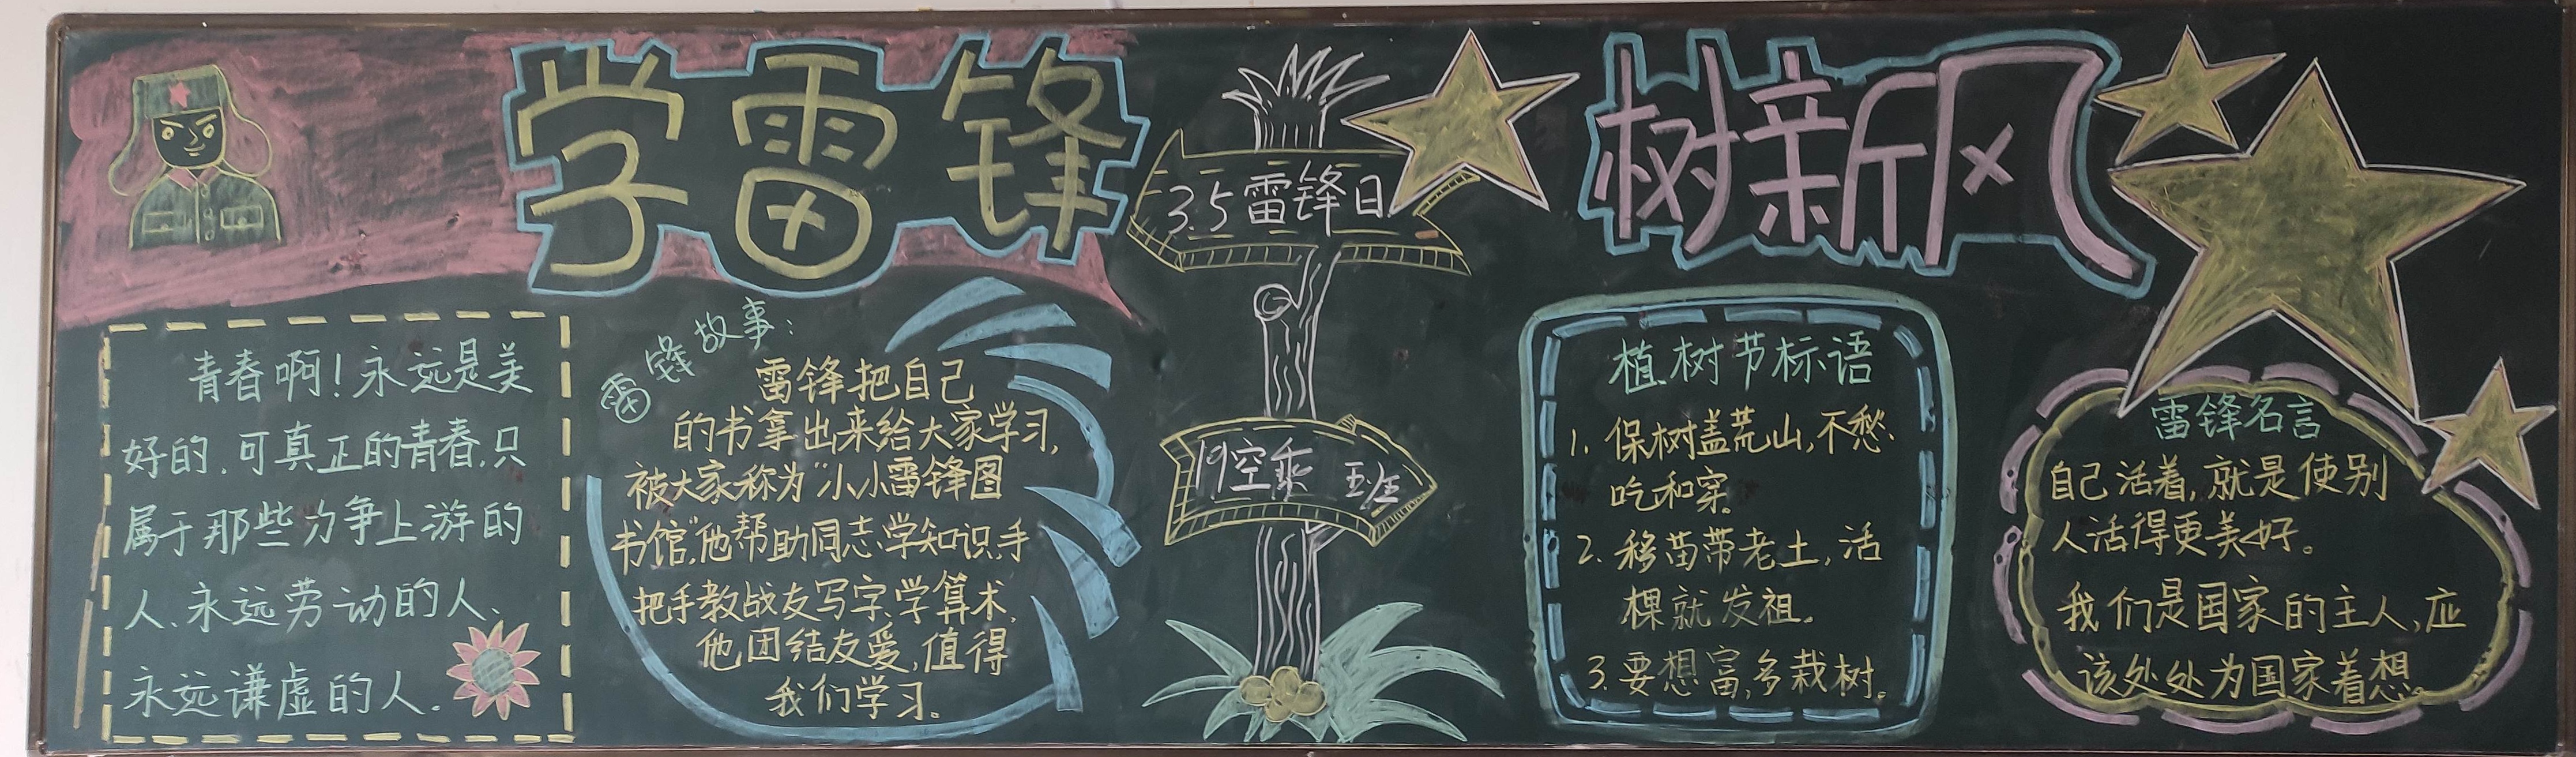 学雷锋
树新风
青春啊！永远是美
好的,可真正的青春,只
属于那些力争上游的
人、永远劳动的人、
永远谦虚的人.
雷锋故事:
雷锋把自己
的书拿出来给大家学习,
被大家称为“小小雷锋图
书馆,”他帮助同志学知识,手
把手教战友写字,学算术,
他团结友爱,值得
我们学习。
3.5雷锋日
19空乘 五班
植树节标语
1. 保树盖荒山,不愁
吃和穿。
2. 移苗带老土,活
棵就发祖。
3.要想富,多栽树。
雷锋名言
自己活着,就是使别
人活得更美好。
我们是国家的主人,应
该处处为国家着想。